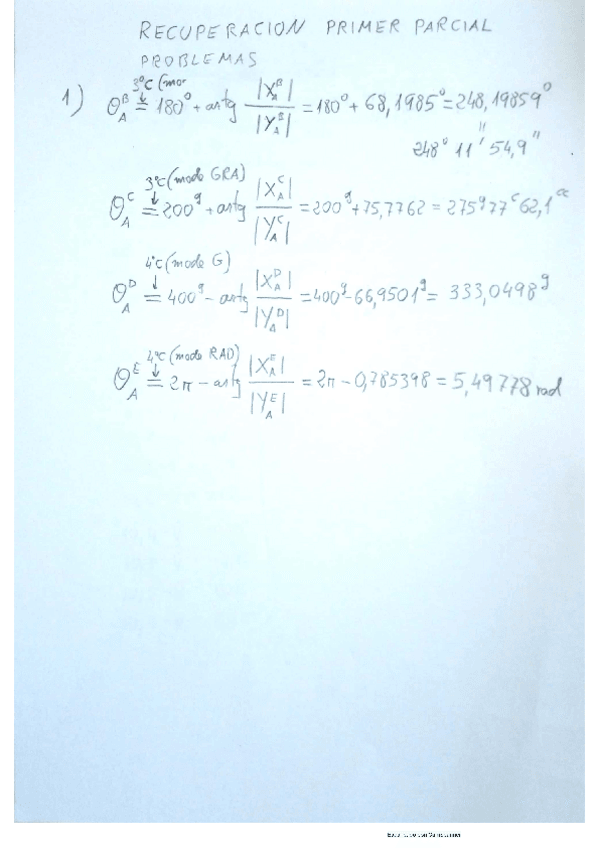 RECUPERACION PRIMER PARCIAL
PROBLEMAS
3ºC (mo
1) θ_A^B = 180º + artg |X_A^B| / |Y_A^B| = 180º + 68,1985º = 248,19859º
248º 11' 54,9"
3ºC (mode GRA)
θ_A^C = 200^g + artg |X_A^C| / |Y_A^C| = 200^g + 75,7762 = 275^g 77^c 62,1^cc
4ºC (mode G)
θ_A^D = 400^g - artg |X_A^D| / |Y_A^D| = 400^g - 66,9501^g = 333,0498^g
4ºC (mode RAD)
θ_A^E = 2π - artg |X_A^E| / |Y_A^E| = 2π - 0,785398 = 5,49778 rad